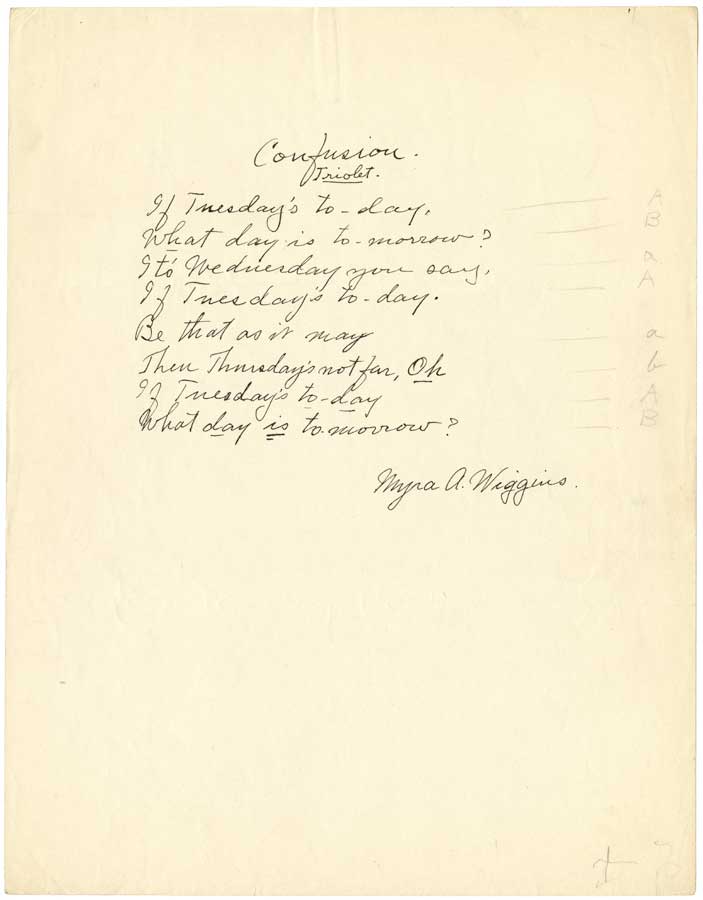 Confusion.
Triolet.
If Tuesday's to-day,
What day is to-morrow?
It's Wednesday you say,
If Tuesday's to-day.
Be that as it may
Then Thursday's not far, Oh
If Tuesday's to-day
What day is to-morrow?
Myra A. Wiggins.
A
B
a
A
a
b
A
B